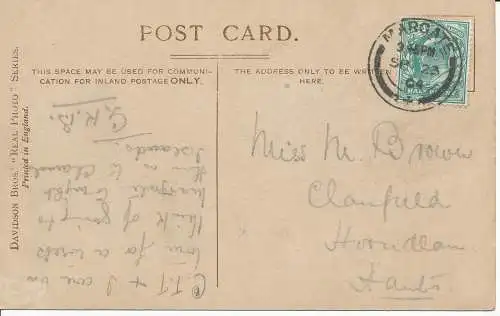 POST CARD.
THIS SPACE MAY BE USED FOR COMMUNI-
CATION FOR INLAND POSTAGE ONLY.
THE ADDRESS ONLY TO BE WRITTEN
HERE.
DAVIDSON BROS.' "REAL PHOTO" SERIES.
Printed in England.
& I are in
town for a week &
think of going to
tonight
then on to Channel
Islands.
G.K.B.
Miss M. Brown
Clanfield
Horndean
Hants.
PM
HALF